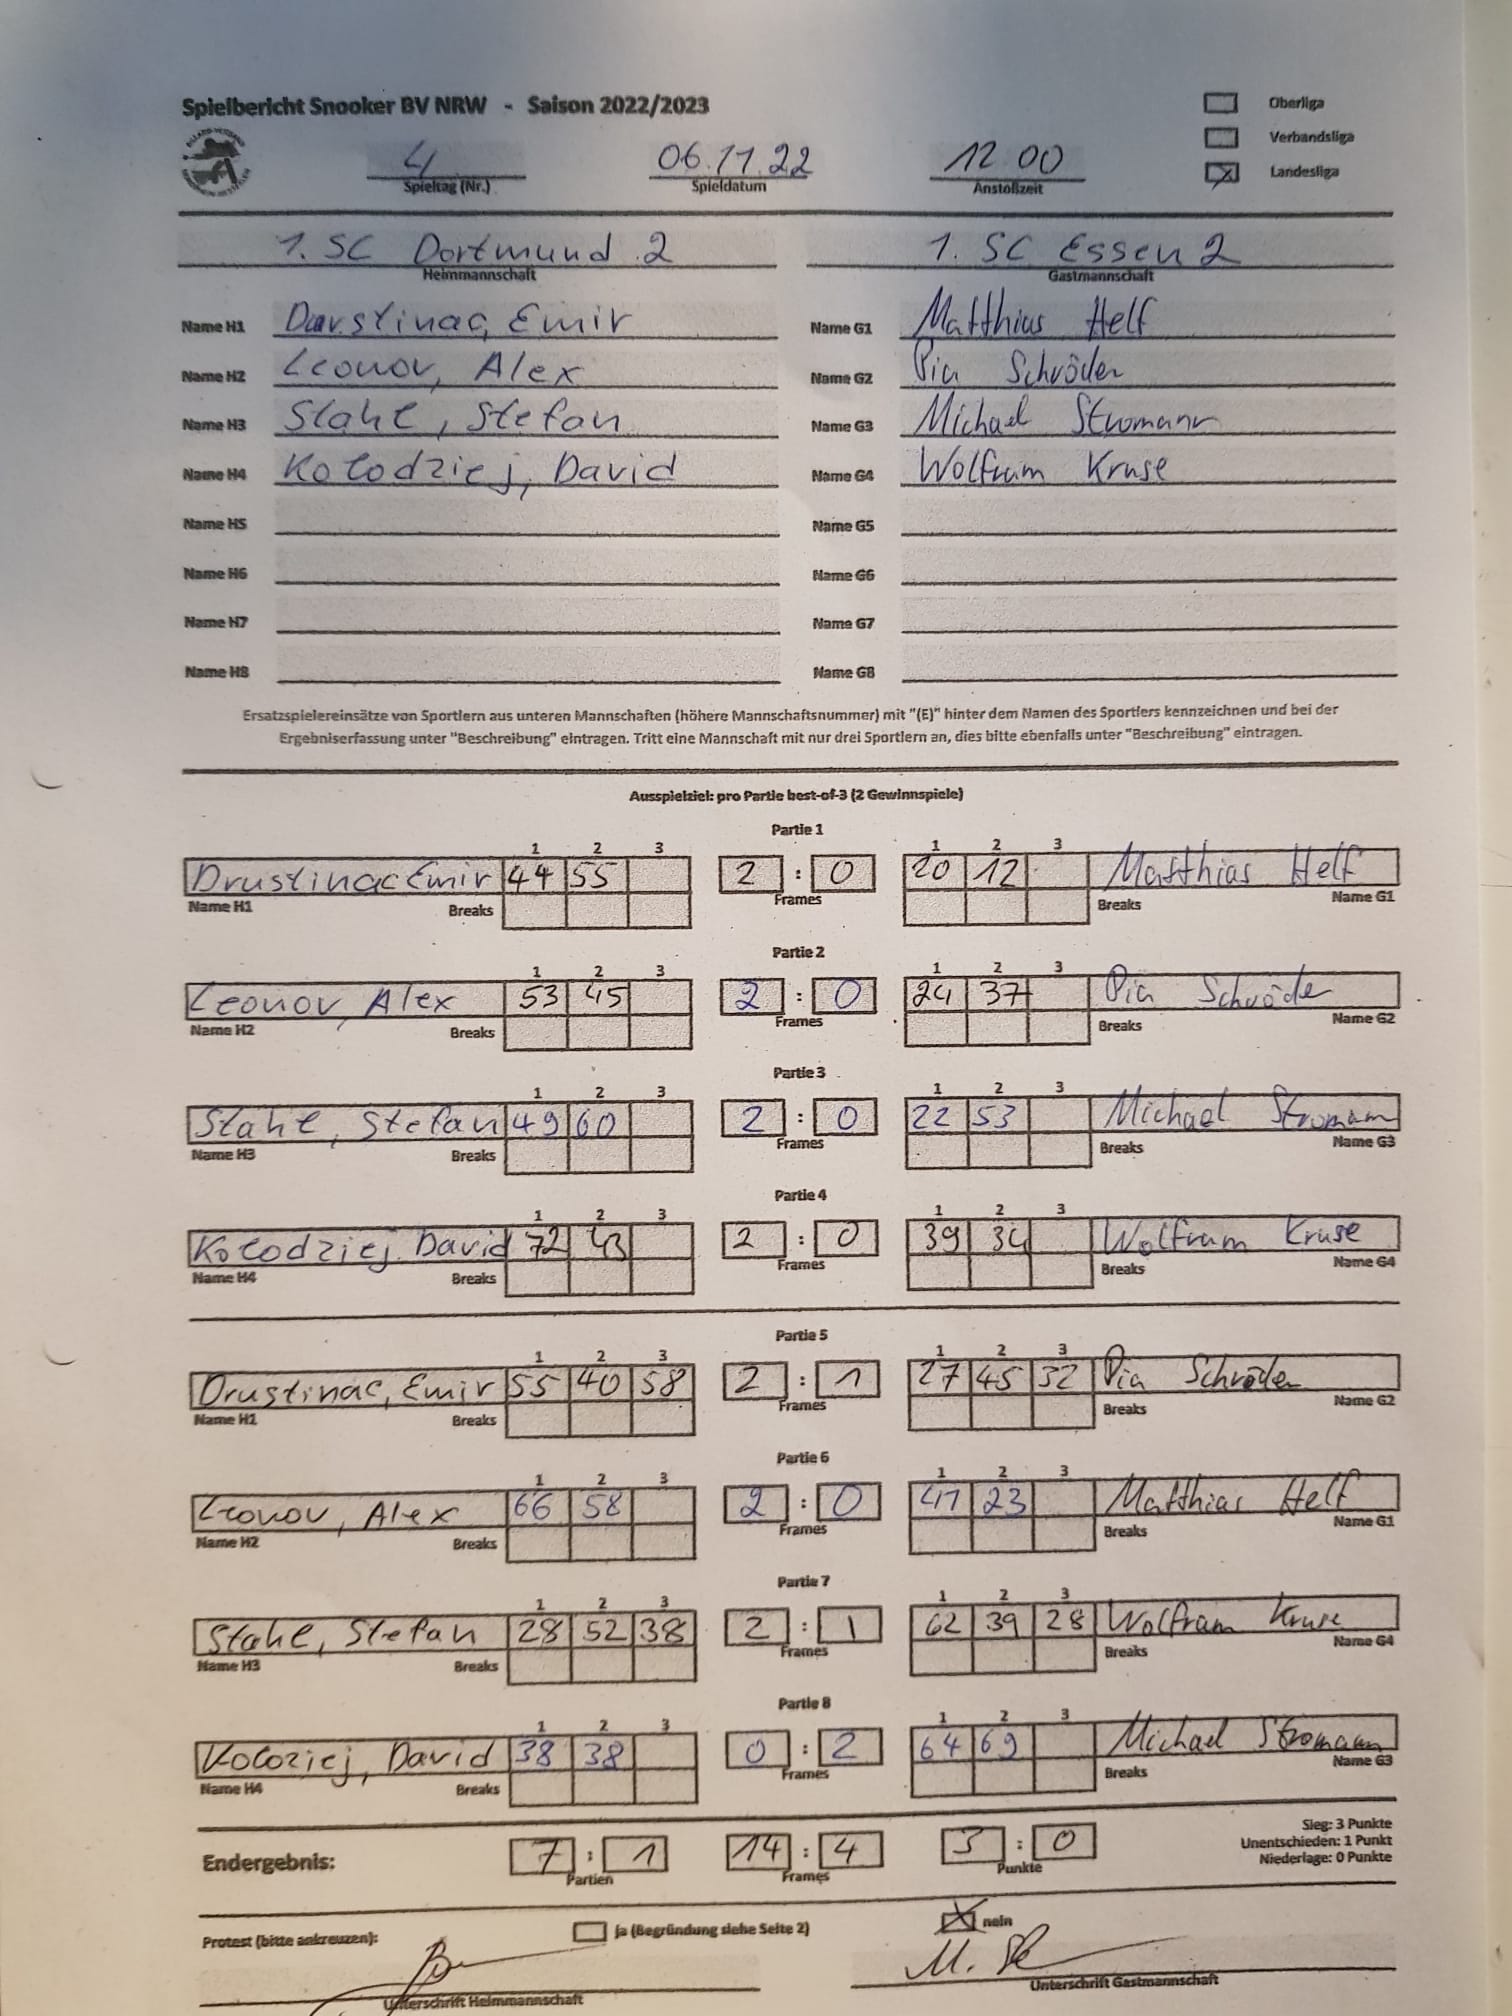 Spielbericht Snooker BV NRW - Saison 2022/2023
Oberliga
Verbandsliga
Landesliga
4 06.11.22 12 00
Spieltag (Nr.) Spieldatum Anstoßzeit
1. SC Dortmund 2 1. SC Essen 2
Heimmannschaft Gastmannschaft
Name H1 Durstinac, Emir Name G1 Matthias Helf
Name H2 Leonov, Alex Name G2 Pia Schröder
Name H3 Stahl, Stefan Name G3 Michael Stromann
Name H4 Kolodziej, David Name G4 Wolfram Kruse
Name H5 Name G5
Name H6 Name G6
Name H7 Name G7
Name H8 Name G8
Ersatzspielereinsätze von Sportlern aus unteren Mannschaften (höhere Mannschaftsnummer) mit "(E)" hinter dem Namen des Sportlers kennzeichnen und bei der
Ergebniserfassung unter "Beschreibung" eintragen. Tritt eine Mannschaft mit nur drei Sportlern an, dies bitte ebenfalls unter "Beschreibung" eintragen.
Ausspielziel: pro Partie best-of-3 (2 Gewinnspiele)
Partie 1
1 2 3 1 2 3
Drustinac Emir 44 55 2 : 0 20 12 Matthias Helf
Name H1 Breaks Frames Breaks Name G1
Partie 2
1 2 3 1 2 3
Leonov, Alex 53 45 2 : 0 24 37 Pia Schröder
Name H2 Breaks Frames Breaks Name G2
Partie 3
1 2 3 1 2 3
Stahl, Stefan 49 60 2 : 0 22 53 Michael Stromann
Name H3 Breaks Frames Breaks Name G3
Partie 4
1 2 3 1 2 3
Kolodziej, David 72 43 2 : 0 39 34 Wolfram Kruse
Name H4 Breaks Frames Breaks Name G4
Partie 5
1 2 3 1 2 3
Drustinac, Emir 55 40 58 2 : 1 27 45 32 Pia Schröder
Name H1 Breaks Frames Breaks Name G2
Partie 6
1 2 3 1 2 3
Leonov, Alex 66 58 2 : 0 41 23 Matthias Helf
Name H2 Breaks Frames Breaks Name G1
Partie 7
1 2 3 1 2 3
Stahl, Stefan 28 52 38 2 : 1 62 39 28 Wolfram Kruse
Name H3 Breaks Frames Breaks Name G4
Partie 8
1 2 3 1 2 3
Koloziej, David 38 38 0 : 2 64 69 Michael Stromann
Name H4 Breaks Frames Breaks Name G3
Endergebnis: 7 : 1 14 : 4 3 : 0
Partien Frames Punkte
Sieg: 3 Punkte
Unentschieden: 1 Punkt
Niederlage: 0 Punkte
Protest (bitte ankreuzen): ja (Begründung siehe Seite 2) nein
Unterschrift Heimmannschaft Unterschrift Gastmannschaft